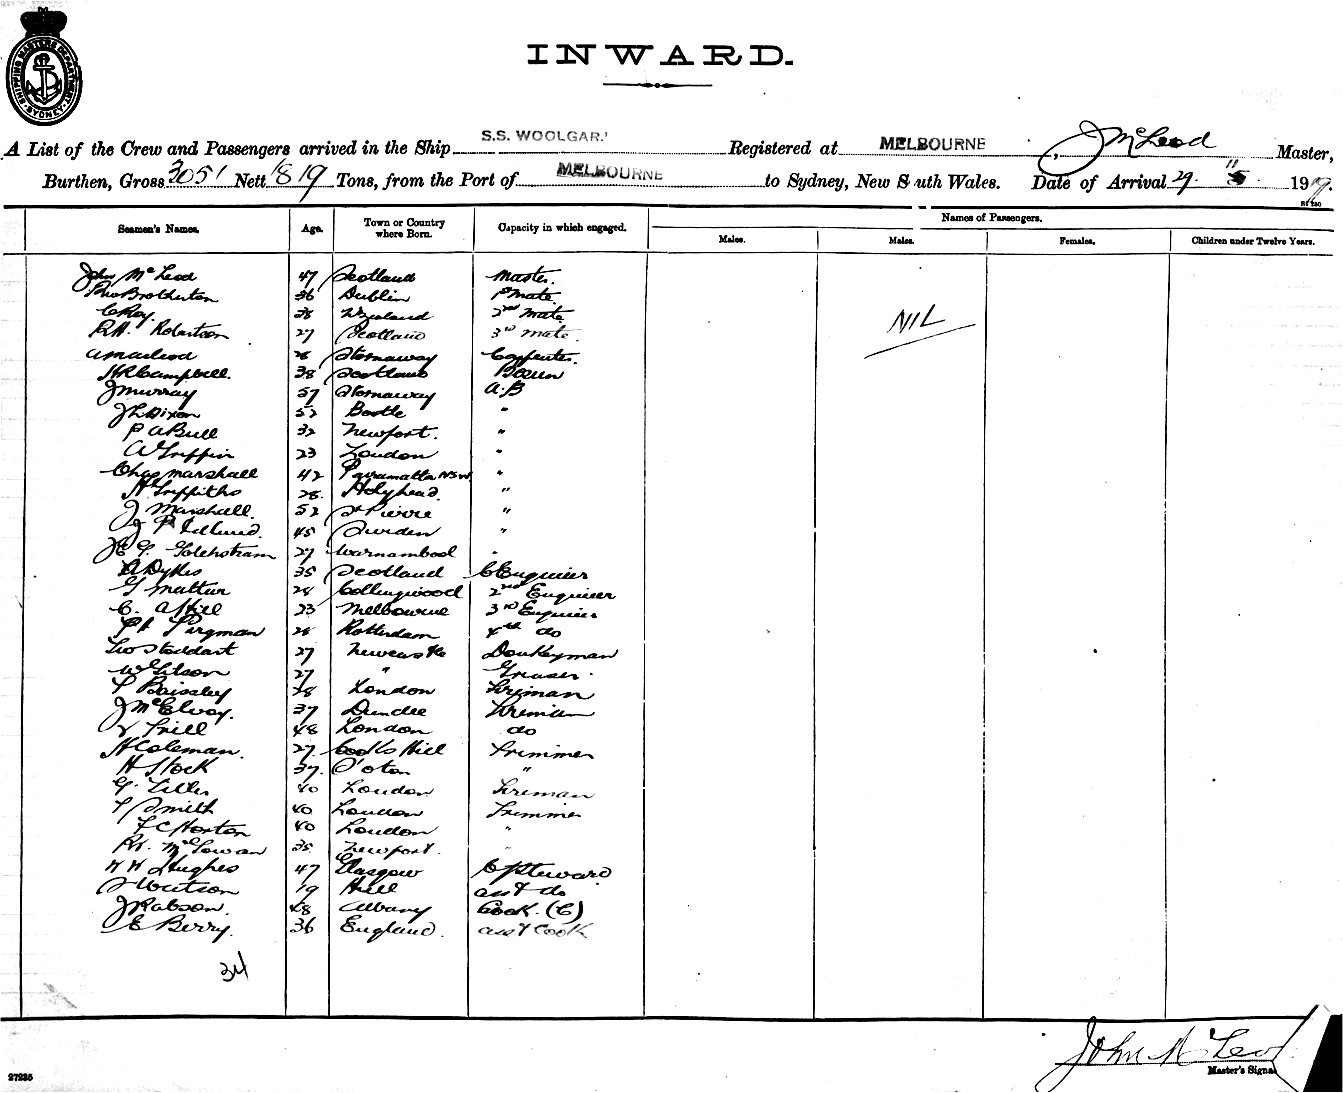 SHIPPING MASTERS DEPARTMENT SYDNEY
INWARD.
A List of the Crew and Passengers arrived in the Ship S.S. WOOLGAR. Registered at MELBOURNE, J McLeod Master,
Burthen, Gross 3051 Nett 1819 Tons, from the Port of MELBOURNE to Sydney, New South Wales. Date of Arrival 29 19
Names of Passengers.
Seamen's Names. Age. Town or Country where Born. Capacity in which engaged. Males. Males. Females. Children under Twelve Years.
John McLeod 47 Scotland Master.
Brotherton 36 Dublin 1st Mate
C Roy 38 2nd Mate
NIL
R.H. Robertson 27 Scotland 3rd Mate
A Macleod 28 Stornaway Carpenter.
Campbell. 38 Scotland Bosun
J Murray 57 Stornaway A.B
J L Dixon 52 Bootle "
P A Bull 32 Newport. "
W Griffin 23 London "
Chas Marshall 42 Parramatta NSW "
H Griffiths 28. Holyhead. "
J Marshall. 52 St Pierre "
J P 45 Sweden "
27 Warnambool "
A Dykes 35 Scotland C Engineer
G 28 Collingwood 2nd Engineer
C. 23 Melbourne 3rd Engineer
28 Rotterdam 4th do
Geo Stoddart 27 Newcastle Donkeyman
W Gibson 27 " Greaser.
Baissley 38 London Fireman
J McElvoy. 37 Dundee Fireman
48 London do
H Coleman. 27 Hill Trimmer
H Stock 37. "
G. 40 London Fireman
T Smith 40 London Trimmer
F C Horton 40 London "
McGowan 35 Newport.
H Hughes 47 Glasgow C/Steward
Watson 19 Hull asst do
J Robson. 48 Albany Cook. (C)
E Berry. 36 England. asst Cook
34
John McLeod
Master's Signa
27235